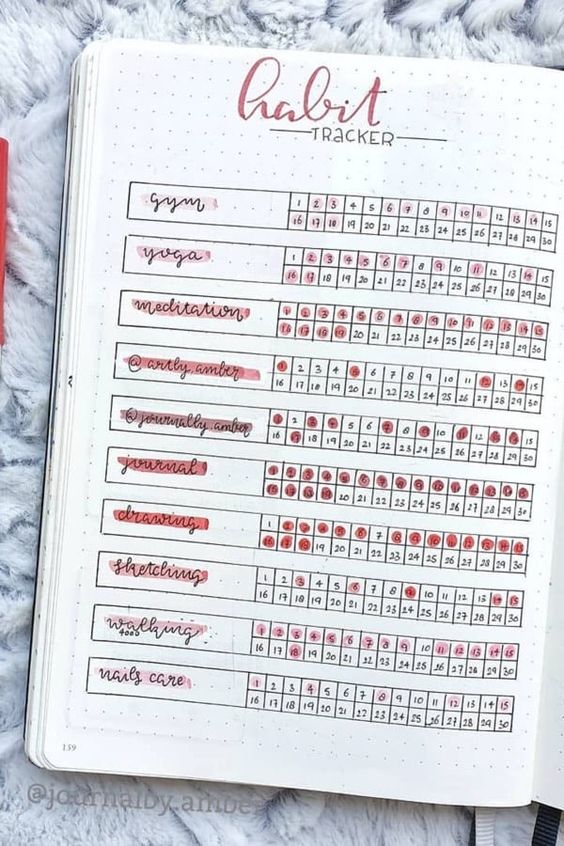 habit
TRACKER
gym
1 2 3 4 5 6 7 8 9 10 11 12 13 14 15
16 17 18 19 20 21 22 23 24 25 26 27 28 29 30
yoga
1 2 3 4 5 6 7 8 9 10 11 12 13 14 15
16 17 18 19 20 21 22 23 24 25 26 27 28 29 30
meditation
1 2 3 4 5 6 7 8 9 10 11 12 13 14 15
16 17 18 19 20 21 22 23 24 25 26 27 28 29 30
@artly.amber
1 2 3 4 5 6 7 8 9 10 11 12 13 14 15
16 17 18 19 20 21 22 23 24 25 26 27 28 29 30
@journally.amber
1 2 3 4 5 6 7 8 9 10 11 12 13 14 15
16 17 18 19 20 21 22 23 24 25 26 27 28 29 30
journal
1 2 3 4 5 6 7 8 9 10 11 12 13 14 15
16 17 18 19 20 21 22 23 24 25 26 27 28 29 30
drawing
1 2 3 4 5 6 7 8 9 10 11 12 13 14 15
16 17 18 19 20 21 22 23 24 25 26 27 28 29 30
sketching
1 2 3 4 5 6 7 8 9 10 11 12 13 14 15
16 17 18 19 20 21 22 23 24 25 26 27 28 29 30
walking
4000
1 2 3 4 5 6 7 8 9 10 11 12 13 14 15
16 17 18 19 20 21 22 23 24 25 26 27 28 29 30
nails care
1 2 3 4 5 6 7 8 9 10 11 12 13 14 15
16 17 18 19 20 21 22 23 24 25 26 27 28 29 30
159
@journalby.amber